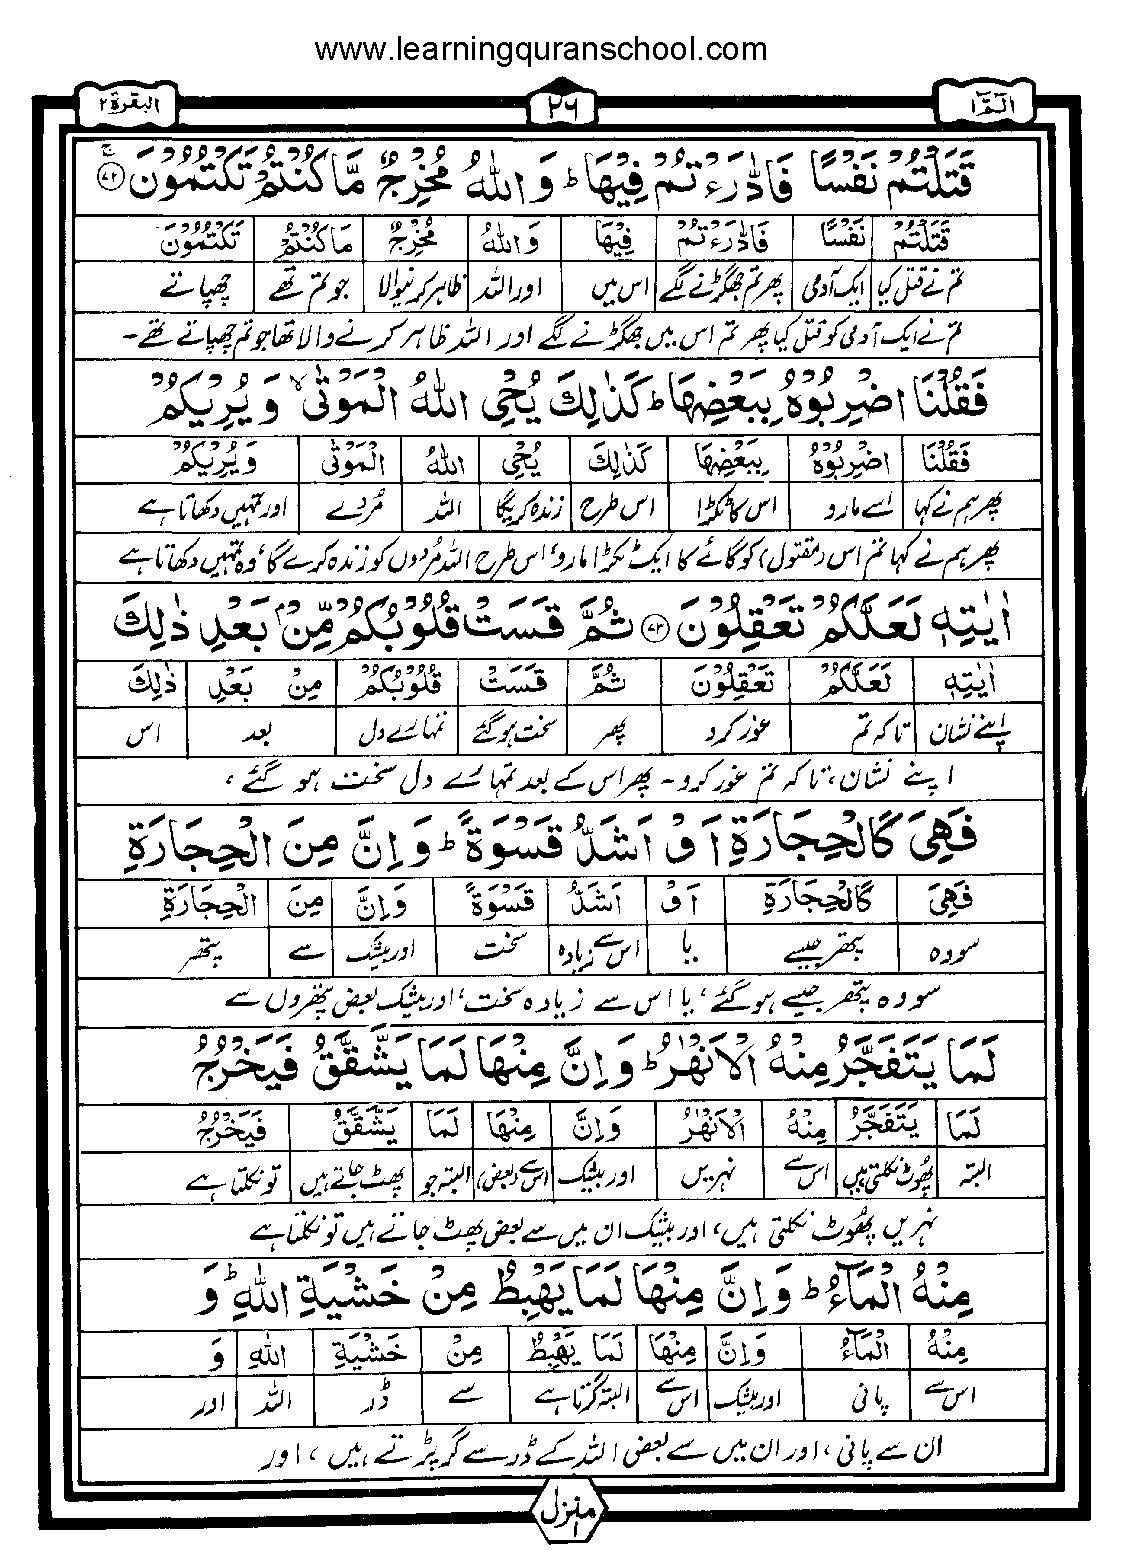 www.learningquranschool.com
الٓمٓ ۱
۲۶
البقرة ۲
قَتَلْتُمْ نَفْسًا فَادّٰرَءْتُمْ فِیْهَاؕ وَ اللّٰهُ مُخْرِجٌ مَّا كُنْتُمْ تَكْتُمُوْنَۚ ﴿۷۲﴾
قَتَلْتُمْ نَفْسًا فَادّٰرَءْتُمْ فِیْهَا وَ اللّٰهُ مُخْرِجٌ مَا كُنْتُمْ تَكْتُمُوْنَ
تم نے قتل کیا ایک آدمی پھر تم جھگڑنے لگے اس میں اور اللہ ظاہر کرنیوالا جو تم تھے چھپاتے
تم نے ایک آدمی کو قتل کیا پھر تم اس میں جھگڑنے لگے اور اللہ ظاہر کرنے والا تھا جو تم چھپاتے تھے۔
فَقُلْنَا اضْرِبُوْهُ بِبَعْضِهَاؕ كَذٰلِكَ یُحْیِ اللّٰهُ الْمَوْتٰىۙ وَ یُرِیْكُمْ
فَقُلْنَا اضْرِبُوْهُ بِبَعْضِهَا كَذٰلِكَ یُحْیِ اللّٰهُ الْمَوْتٰى وَ یُرِیْكُمْ
پھر ہم نے کہا اسے مارو اس کا ٹکڑا اس طرح زندہ کریگا اللہ مُردے اور تمہیں دکھاتا ہے
پھر ہم نے کہا تم اس (مقتول) کو گائے کا ایک ٹکڑا مارو، اس طرح اللہ مُردوں کو زندہ کرے گا، وہ تمہیں دکھاتا ہے
اٰیٰتِهٖ لَعَلَّكُمْ تَعْقِلُوْنَ ﴿۷۳﴾ ثُمَّ قَسَتْ قُلُوْبُكُمْ مِّنْۢ بَعْدِ ذٰلِكَ
اٰیٰتِهٖ لَعَلَّكُمْ تَعْقِلُوْنَ ثُمَّ قَسَتْ قُلُوْبُكُمْ مِنْ بَعْدِ ذٰلِكَ
اپنے نشان تاکہ تم غور کرو پھر سخت ہو گئے تمہارے دل بعد اس
اپنے نشان، تاکہ تم غور کرو۔ پھر اس کے بعد تمہارے دل سخت ہو گئے،
فَهِیَ كَالْحِجَارَةِ اَوْ اَشَدُّ قَسْوَةًؕ وَ اِنَّ مِنَ الْحِجَارَةِ
فَهِیَ كَالْحِجَارَةِ اَوْ اَشَدُّ قَسْوَةً وَ اِنَّ مِنَ الْحِجَارَةِ
سو وہ پتھر جیسے یا اس سے زیادہ سخت اور بیشک سے پتھر
سو وہ پتھر جیسے ہو گئے، یا اس سے زیادہ سخت، اور بیشک بعض پتھروں سے
لَمَا یَتَفَجَّرُ مِنْهُ الْاَنْهٰرُؕ وَ اِنَّ مِنْهَا لَمَا یَشَّقَّقُ فَیَخْرُجُ
لَمَا یَتَفَجَّرُ مِنْهُ الْاَنْهٰرُ وَ اِنَّ مِنْهَا لَمَا یَشَّقَّقُ فَیَخْرُجُ
البتہ پھوٹ نکلتی ہیں اس سے نہریں اور بیشک اس سے (بعض) البتہ جو پھٹ جاتے ہیں تو نکلتا ہے
نہریں پھوٹ نکلتی ہیں، اور بیشک ان میں سے بعض پھٹ جاتے ہیں تو نکلتا ہے
مِنْهُ الْمَآءُؕ وَ اِنَّ مِنْهَا لَمَا یَهْبِطُ مِنْ خَشْیَةِ اللّٰهِؕ وَ
مِنْهُ الْمَآءُ وَ اِنَّ مِنْهَا لَمَا یَهْبِطُ مِنْ خَشْیَةِ اللّٰهِ وَ
اس سے پانی اور بیشک اس سے البتہ گرتا ہے سے ڈر اللہ اور
ان سے پانی، اور ان میں سے بعض اللہ کے ڈر سے گر پڑتے ہیں، اور
منزل ۱